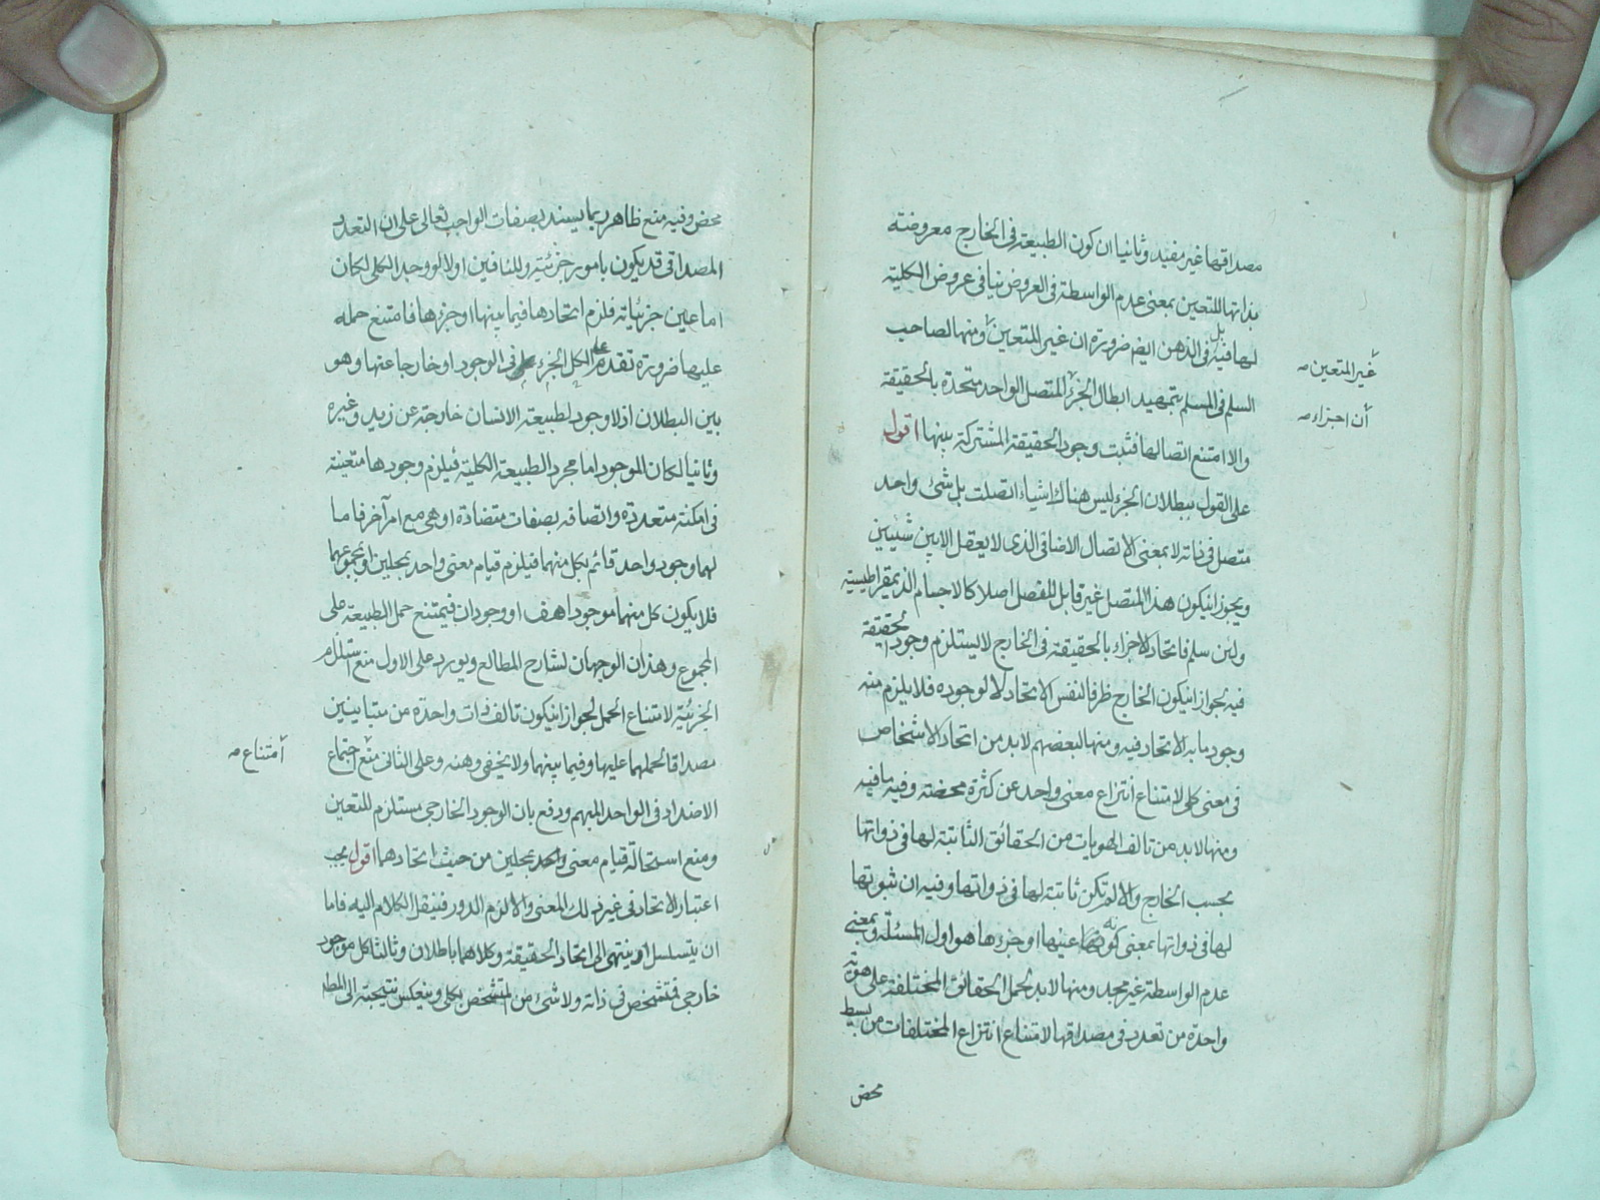 مصداقها غير مفيد وثانيا ان كون الطبيعة فى الخارج معروضة
بذاتها للتعين بمعنى عدم الواسطة فى العروض ينافى عروض الكلية
لها فيه بل فى الذهن ايضا ضرورة ان غير المتعين ومنها لصاحب
غير المتعين صح
السلم فى المسلم بتمهيد ابطال الجزء المتصل الواحد متحدة بالحقيقة
أن اجزاء صح
والا امتنع اتصالها فثبت وجود الحقيقة المشتركة بينها اقول
على القول ببطلان الجزء ليس هناك اشياء اتصلت بل شئ واحد
متصل فى ذاته لا بمعنى الاتصال الاضافى الذى لا يعقل الا بين شيئين
ويجوز انيكون هذا المتصل غير قابل للفصل اصلا كالاجسام الذيمقراطيسية
ولئن سلم فاتحاد الاجزاء بالحقيقة فى الخارج لا يستلزم وجود الحقيقة
فيه لجواز انيكون الخارج ظرفا لنفس الاتحاد لا لوجوده فلا يلزم منه
وجود ما به الاتحاد فيه ومنها لبعضهم لابد من اتحاد الاشخاص
فى معنى كلى لامتناع انتزاع معنى واحد عن كثرة محضة وفيه ما فيه
ومنها لابد من تالف الهويات من الحقائق الثابتة لها فى ذواتها
بحسب الخارج والا لم تكن ثابتة لها فى ذواتها وفيه ان ثبوتها
لها فى ذواتها بمعنى كونها عينها او جزءها هو اول المسئلة وبمعنى
عدم الواسطة غير مجد ومنها لابد لحمل الحقائق المختلفة على هوية
واحدة من تعدد فى مصداقها لامتناع انتزاع المختلفات من بسيط
محض
محض وفيه منع ظاهر ربما يسند بصفات الواجب تعالى على ان التعدد
المصداقى قد يكون بامور جزئية وللنافين اولا لو وجد الكلى لكان
اما عين جزئياته فلزم اتحادها فيما بينها او جزءها فامتنع حمله
عليها ضرورة تقدم الجزء على الكل فى الوجود او خارجا عنها وهو
بين البطلان اذ لا وجود لطبيعة الانسان خارجة عن زيد وغيره
وثانيا لكان الموجود اما مجرد الطبيعة الكلية فيلزم وجودها متعينة
فى امكنة متعددة واتصافه بصفات متضادة او هى مع امر آخر فاما
لهما وجود واحد قائم بكل منهما فيلزم قيام معنى واحد بمحلين او بمجموعهما
فلا يكون كل منهما موجودا هف او وجودان فيمتنع حمل الطبيعة على
المجموع وهذان الوجهان لشارح المطالع ويورد على الاول منع استلزام
الجزئية لامتناع الحمل لجواز انيكون تالف ذات واحدة من متباينين
مصداقا لحملهما عليها وفيما بينهما ولا يخفى وهنه وعلى الثانى منع اجتماع
امتناع صح
الاضداد فى الواحد المبهم ودفع بان الوجود الخارجى مستلزم للتعين
ومنع استحالة قيام معنى واحد بمحلين من حيث اتحادهما اقول يجب
اعتبار الاتحاد فى غير ذلك المعنى والا لزم الدور فننقل الكلام اليه فاما
ان يتسلسل او ينتهى الى اتحاد الحقيقة وكلاهما باطلان وثالثا كل موجود
خارجى فتشخص فى ذاته ولا شئ من المتشخص بكلى وينعكس نتيجته الى المط